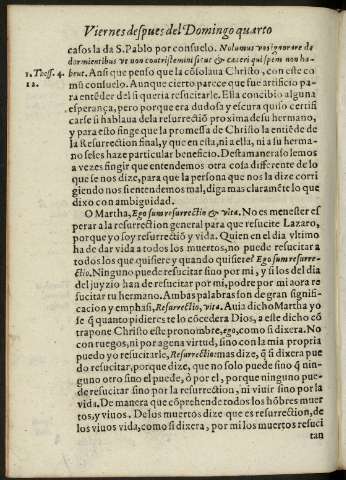 Viernes despues del Domingo quarto
casos la da S. Pablo por consuelo. Nolumus vos ignorare de
dormientibus vt non contristemini sicut & cæteri qui spem non ha-
1. Thess. 4. bent. Ansi que penso que la cōsolaua Christo, con este co
12. mū consuelo. Aunque cierto parece que fue artificio pa-
ra entēder del si queria resucitarle. Ella concibio alguna
esperança, pero porque era dudosa y escura quiso certifi
carse si hablaua dela resurrectiō proxima desu hermano,
y para esto finge que la promessa de Christo la entiēde de
la Resurrection final, y que en esta, ni a ella, ni a su herma-
no seles haze particular beneficio. Desta manera solemos
a vezes fingir que entendemos otra cosa differente de lo
que se nos dize, para que la persona que nos la dize corri
giendo nos si entendemos mal, diga mas claramēte lo que
dixo con ambiguidad.
O Martha, Ego sum resurrectio & vita. No es menester es
perar a la resurrection general para que resucite Lazaro,
porque yo soy resurrectiō y vida. Quien en el dia vltimo
ha de dar vida a todos los muertos, no puede resucitar a
todos los que quisiere y quando quisiere? Ego sum resurre-
ctio. Ninguno puede resucitar sino por mi, y si los del dia
del juyzio han de resucitar por mi, podre por mi aora re
sucitar tu hermano. Ambas palabras son de gran signifi-
cacion y emphasi, Resurrectio, vita. Auia dicho Martha yo
se q̄ quanto pidieres te lo cōcedera Dios, a este dicho cō
trapone Christo este pronombre, ego, como si dixera. No
con ruegos, ni por agena virtud, sino con la mia propria
puedo yo resucitarle, Resurrectio: mas dize, q̄ si dixera pue
do resucitar, porque dize, que no solo puede sino q̄ nin-
guno otro sino el puede, ò por el, porque ninguno pue-
de resucitar sino por la resurrection, ni viuir sino por la
vida. De manera que cōprehende todos los hōbres muer
tos, y viuos. De los muertos dize que es resurrection, de
los viuos vida, como si dixera, por mi los muertos resuci
tan